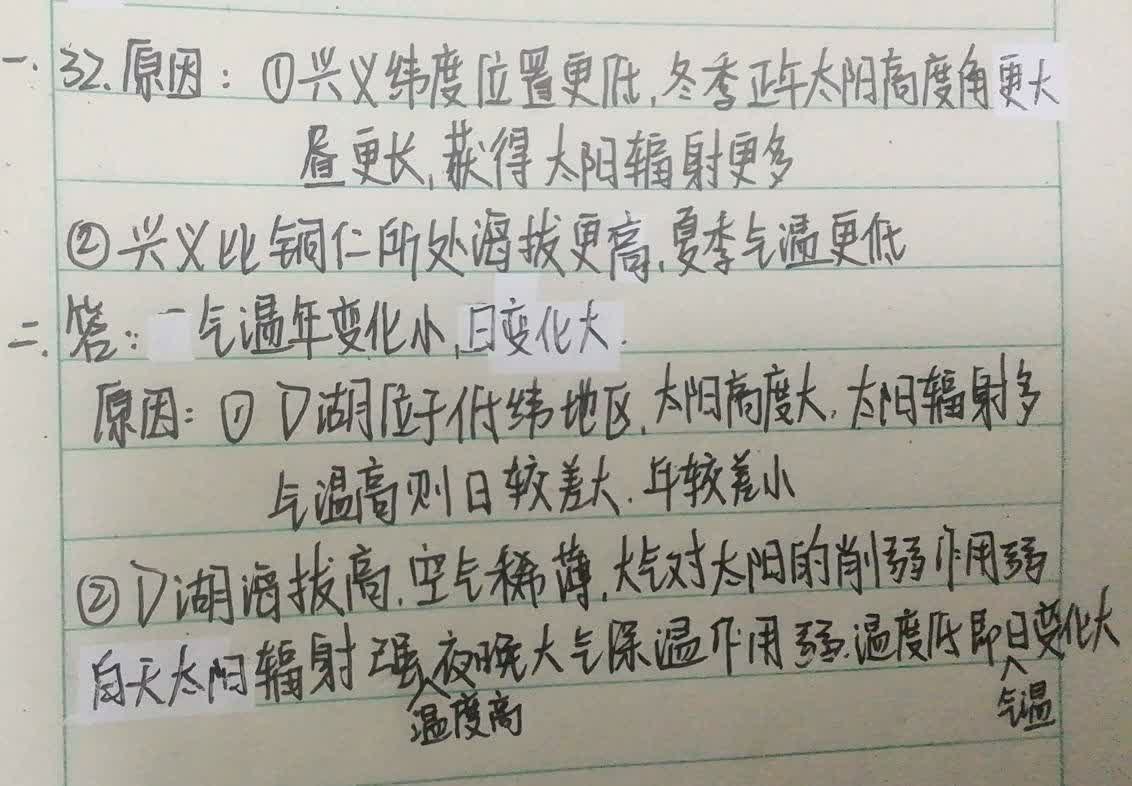 一. 32. 原因: ①兴义纬度位置更低, 冬季正午太阳高度角更大
昼更长, 获得太阳辐射更多
②兴义比铜仁所处海拔更高, 夏季气温更低
二. 答: 气温年变化小, 日变化大.
原因: ① D湖位于低纬地区, 太阳高度大, 太阳辐射多
气温高则日较差大. 年较差小
② D湖海拔高, 空气稀薄, 大气对太阳的削弱作用弱
白天太阳辐射强 夜晚大气保温作用弱. 温度低 即日变化大
温度高 气温